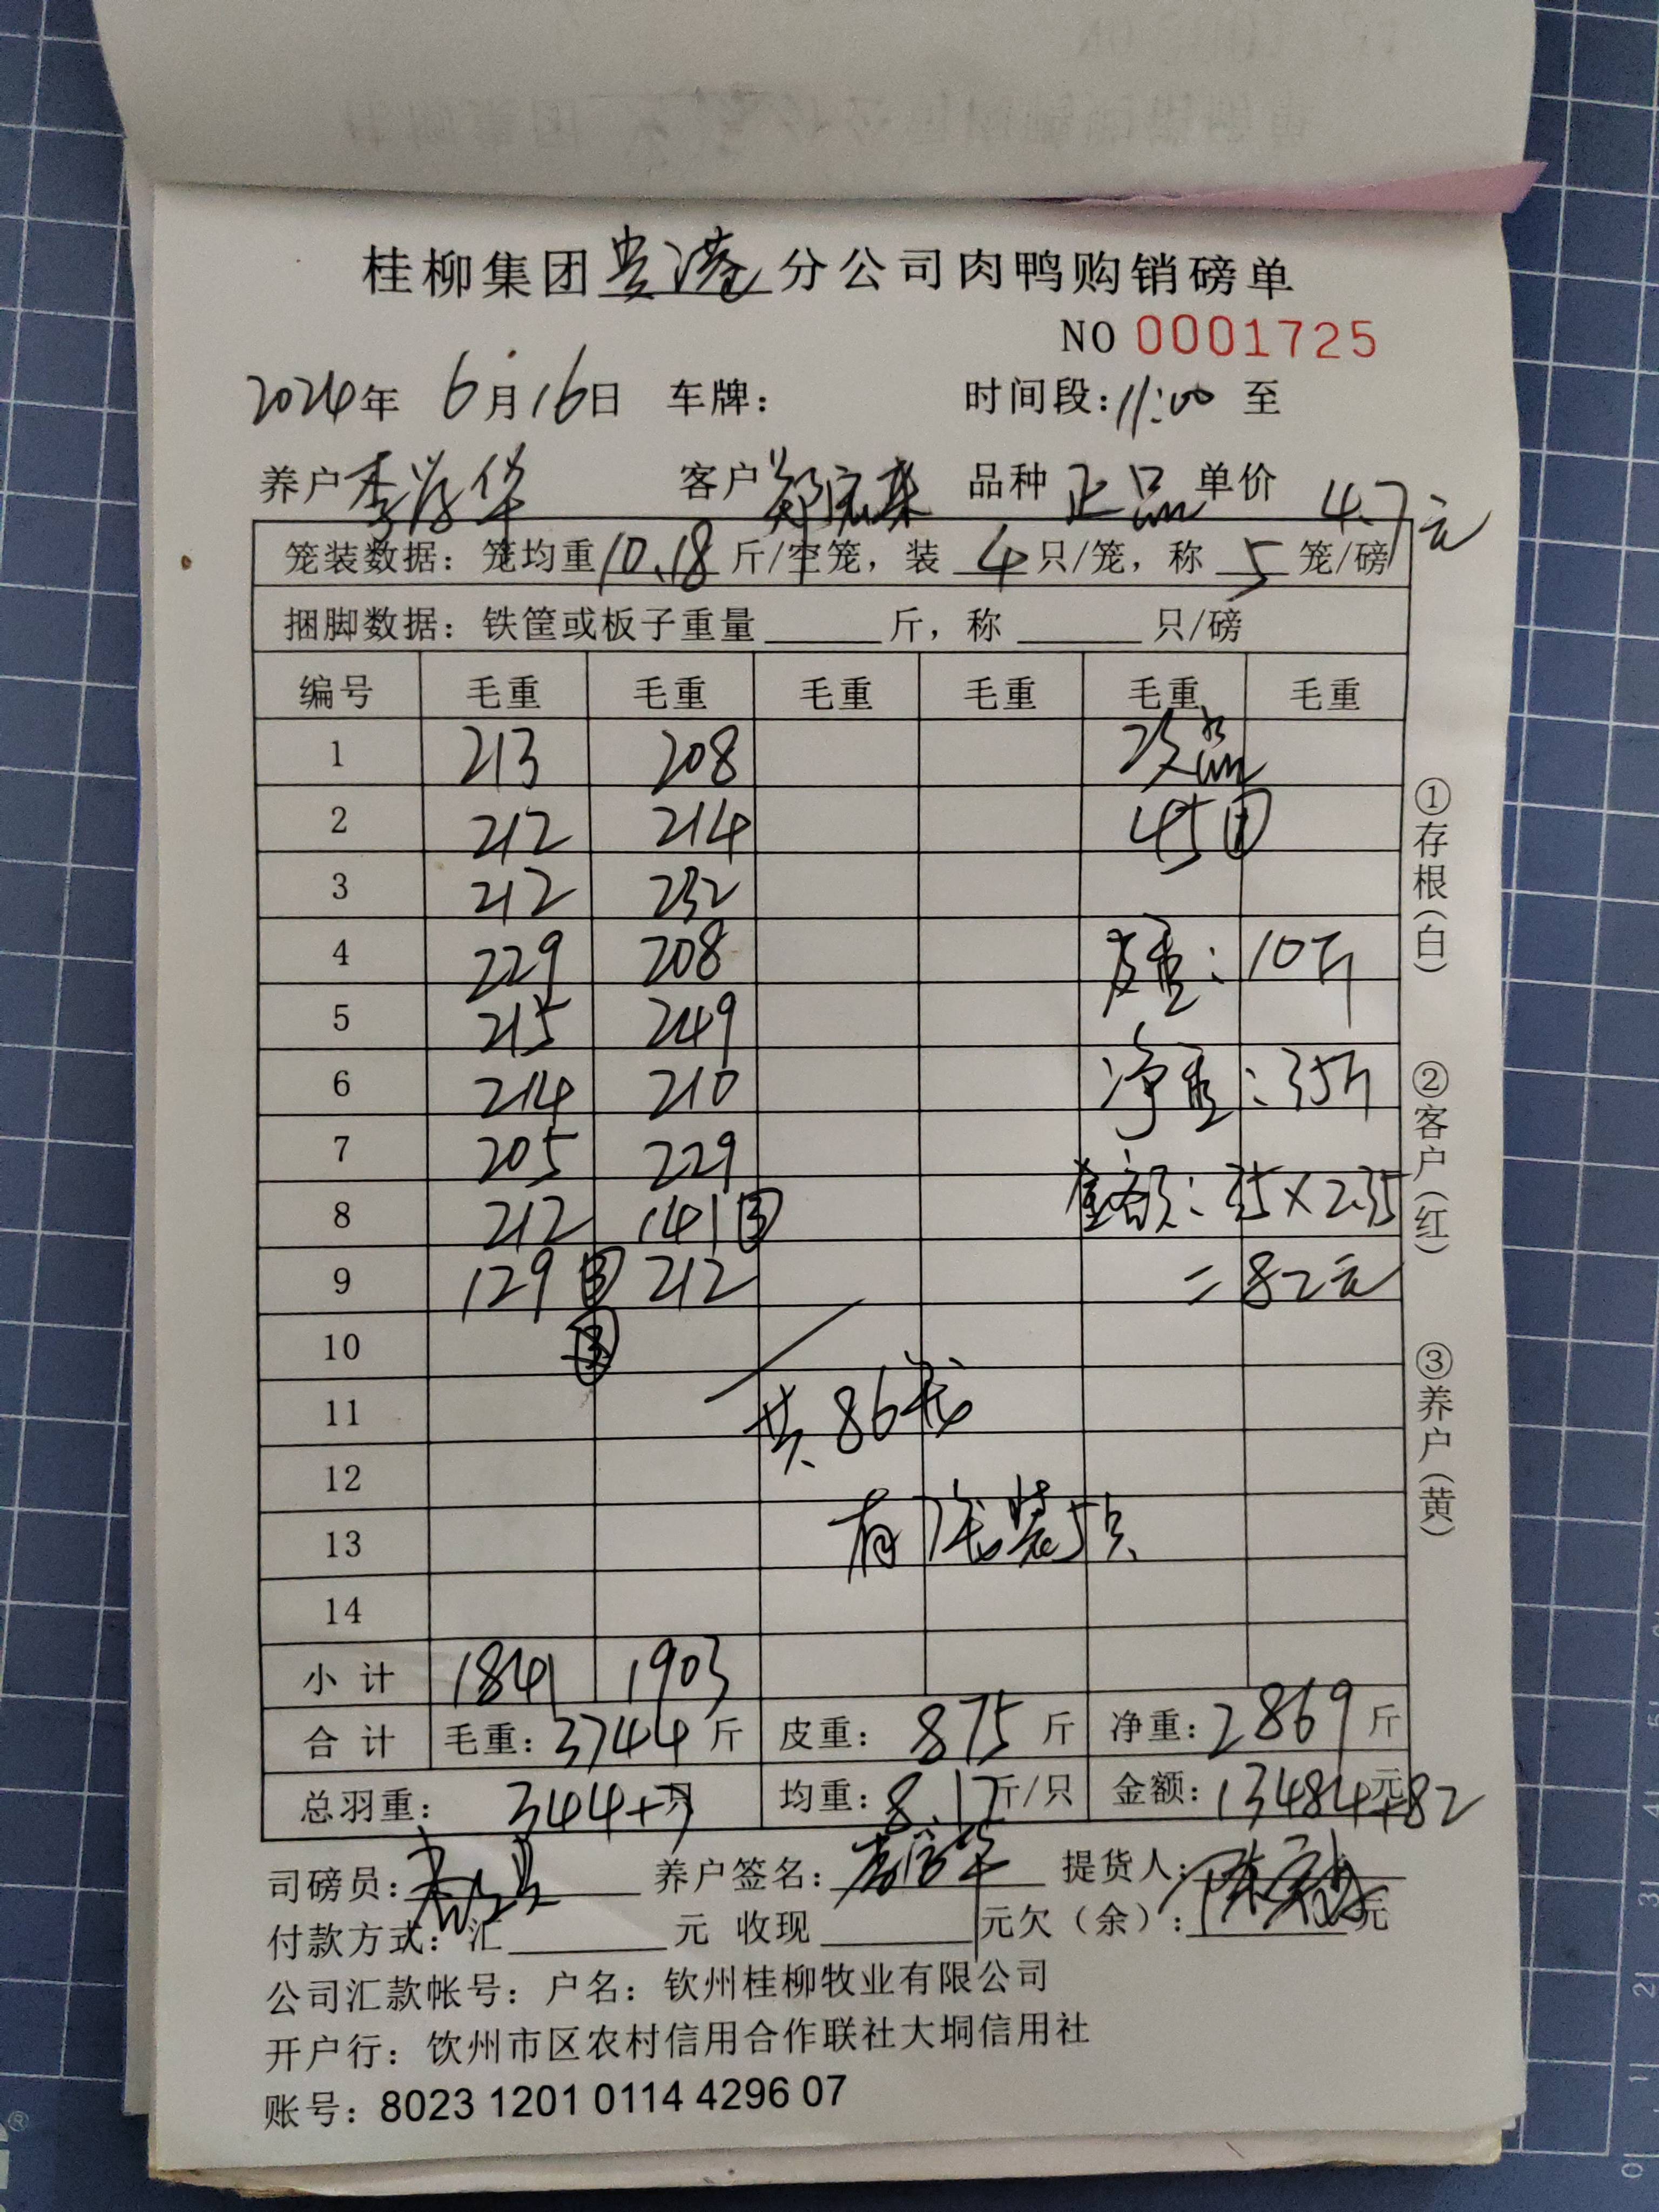 桂柳集团贵港分公司肉鸭购销磅单
NO 0001725
2024年 6月16日 车牌： 时间段：11:00 至
养户 李 华 客户 郑 品种 正品 单价 4.7元
笼装数据：笼均重10.18斤/空笼，装 4 只/笼，称 5 笼/磅
捆脚数据：铁筐或板子重量 斤，称 只/磅
编号 毛重 毛重 毛重 毛重 毛重 毛重
1 213 208 次品
2 212 214 45①
3 212 232
4 229 208 皮重：10斤
5 215 249 净重：35斤
6 214 210
7 205 229
8 212 141③ 金额：35×2.35
9 129③ 212 =82元
10 ③
11 共86笼
12
13 有1笼装5只
14
小计 1841 1903
合计 毛重：3744斤 皮重：875斤 净重：2869斤
总羽重：344+7只 均重：8.17斤/只 金额：13484元+82
司磅员： 养户签名： 提货人：
付款方式：汇 元 收现 元欠（余）： 元
公司汇款帐号：户名：钦州桂柳牧业有限公司
开户行：饮州市区农村信用合作联社大垌信用社
账号：8023 1201 0114 4296 07
①存根（白）
②客户（红）
③养户（黄）